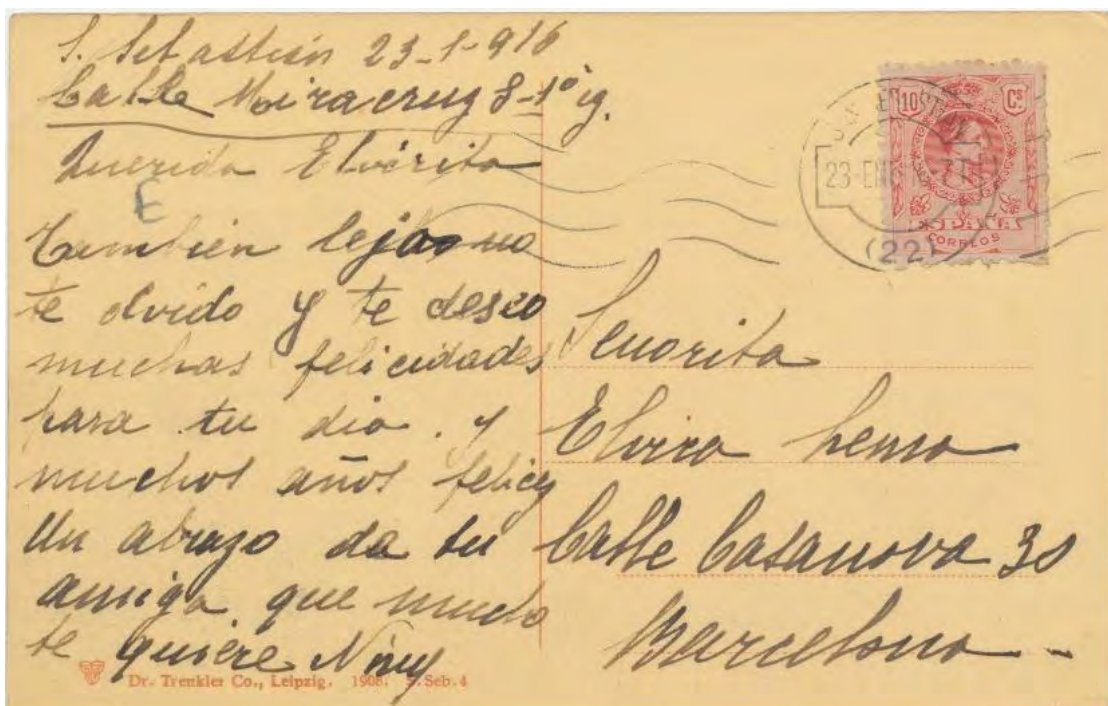 S. Sebastián 23-1-916
Calle Miracruz 8-1º ig.
Querida Elvirita
E
También lejos no
te olvido y te deseo
muchas felicidades
para tu dia. y
muchos años felices
Un abrazo da tu
amiga que mucho
te quiere
Dr. Trenkler Co., Leipzig. 1908. S. Seb. 4
10 Cs
23-EN
ESPAÑA
CORREOS
(22)
Señorita
Elvira
Calle Casanova 30
Barcelona